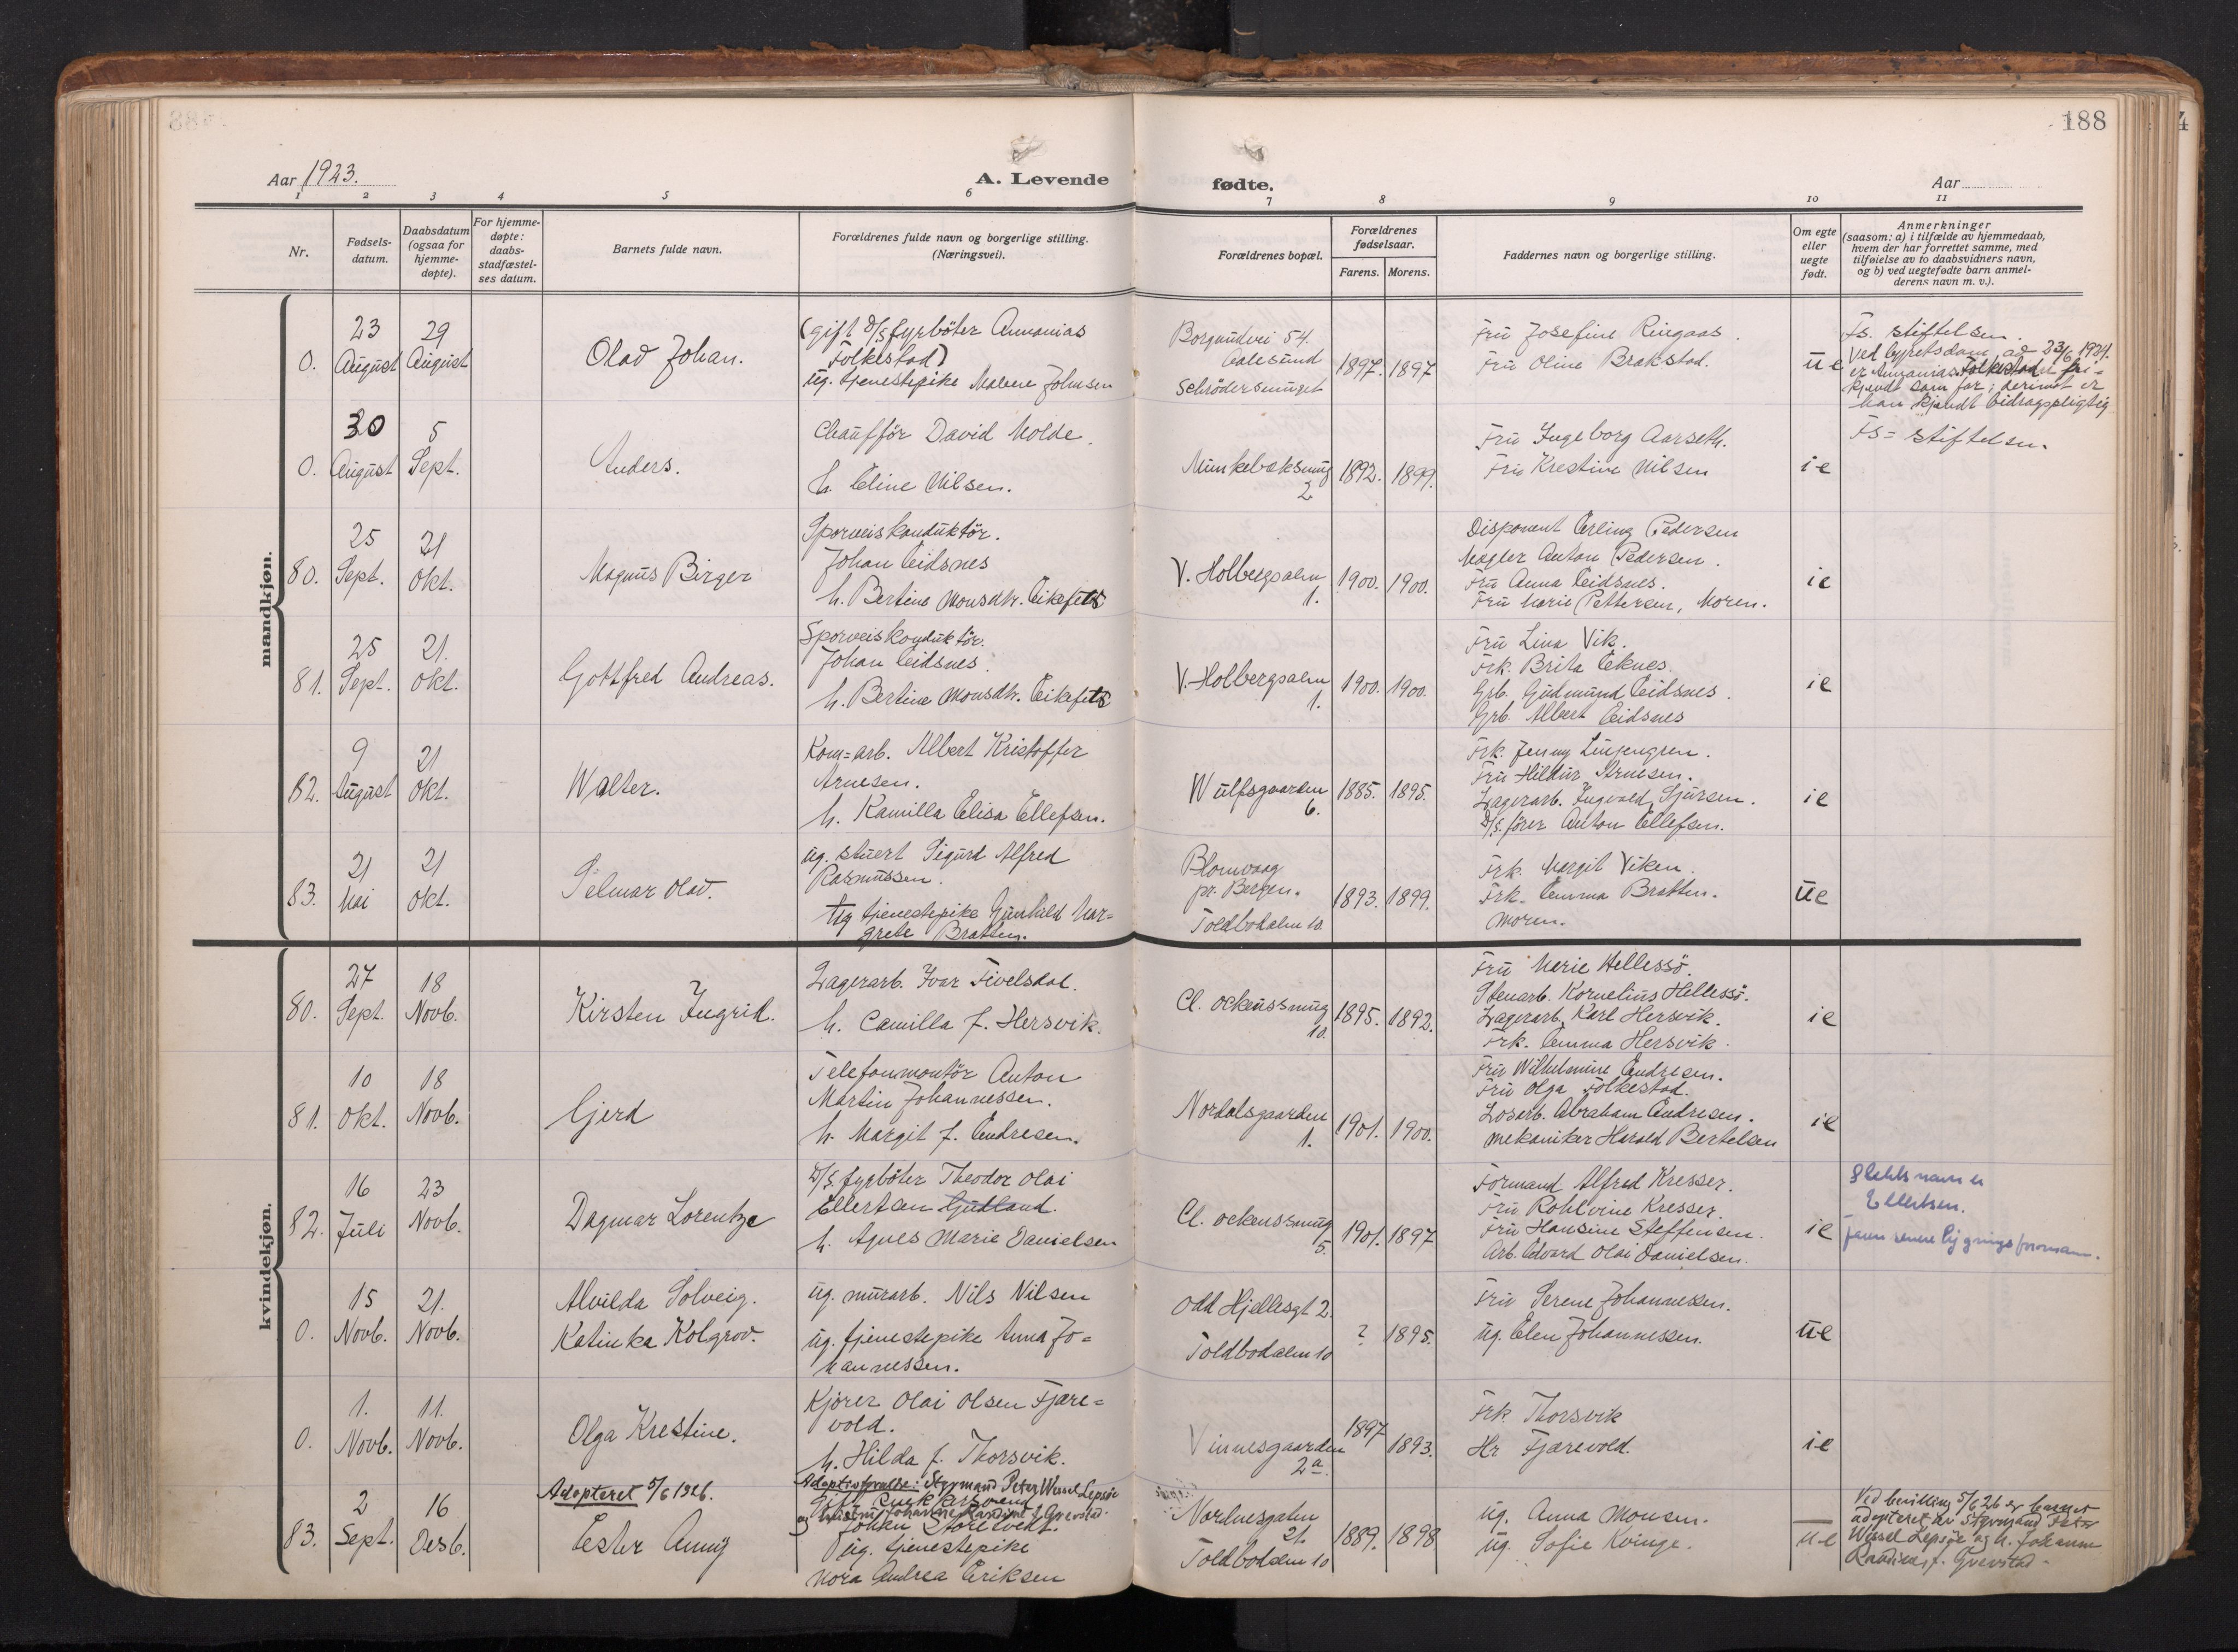 188
Aar 1923.
A. Levende
fødte.
Aar
1 2 3 4 5 6 7 8 9 10 11
Nr.
Fødsels-
datum.
Daabsdatum
(ogsaa for
hjemme-
døpte).
For hjemme-
døpte:
daabs-
stadfæstel-
ses datum.
Barnets fulde navn.
Forældrenes fulde navn og borgerlige stilling.
(Næringsvei).
Forældrenes bopæl.
Forældrenes
fødselsaar.
Farens. Morens.
Faddernes navn og borgerlige stilling.
Om egte
eller
uegte
født.
Anmerkninger
(saasom: a) i tilfælde av hjemmedaab,
hvem der har forrettet samme, med
tilføielse av to daabsvidners navn,
og b) ved uegtefødte barn anmel-
derens navn m. v.).
mandkjøn.
0.
23
August
29
August
Olav Johan.
(gift D/S fyrböter Annanias
Folkestad)
ug. tjenestepike Malene Johnsen
Borgundvei 54.
Aalesund
Schrödersmuget
1897. 1897
Fru Josefine Ringaas.
Fru Oline Brakstad.
ue
Fs. stiftelsen.
Ved byretsdom av 23/6 1924.
er Annanias Folkestad fri-
kjendt som far; derimot er
han kjendt bidragspligtig
0.
30
August
5
Sept.
Anders.
Chaufför David Molde.
h. Eline Nilsen.
Munkebæksmug
2
1892. 1899.
Fru Ingeborg Aarseth.
Fru Krestine Nilsen
ie
Fs= stiftelsen.
80.
25
Sept.
21
Okt.
Magnus Birger
Sporveiskonduktör.
Johan Eidsnes
h. Bertine Monsdtr. Eikefet
V. Holbergsalm
1.
1900. 1900.
Disponent Erling Pedersen
Mægler Anton Pedersen.
Fru Anna Eidsnes.
Fru Marie Pettersen, Moren.
ie
81.
25
Sept.
21.
Okt.
Gottfred Andreas.
Sporveiskonduktör.
Johan Eidsnes.
h. Bertine Monsdtr. Eikefet
V. Holbergsalm
1.
1900. 1900.
Fru Lina Vik.
Frk. Brita Eknes.
Grb. Gudmund Eidsnes.
Grb. Albert Eidsnes
ie
82.
9
August
21
Okt.
Walter.
Kom=arb. Albert Kristoffer
Arnesen.
h. Kamilla Elisa Ellefsen.
Wulfsgaarden
6.
1885. 1895.
Frk. Jenny Ljungren.
Fru Hildur Arnesen.
Lagerarb. Ingvald Sjursen.
D/S. förer Anton Ellefsen.
ie
83.
21
Mai
21
Okt.
Selmar Olav.
ug. stuert Sigurd Alfred
Rasmussen.
ug tjenestepike Gunhild Mar=
grete Bratten.
Blomvaag
pr. Bergen.
Toldbodalm 10.
1893. 1899.
Frk. Margit Viken.
Frk. Emma Bratten.
Moren.
ue
kvindekjøn.
80.
27
Sept.
18
Novb.
Kirsten Ingrid.
Lagerarb. Ivar Fivelsdal.
h. Camilla f. Hersvik.
Cl. Ockenssmug
10.
1895. 1892.
Fru Marie Hellessö.
Stenarb. Kornelius Hellessö.
Lagerarb. Karl Hersvik.
Frk. Emma Hersvik.
ie
81.
10
Okt.
18
Novb.
Gjerd
Telefonmontör Anton
Martin Johannessen.
h. Margit f. Andresen.
Nordalsgaarden
1.
1901. 1900.
Fru Wilhelmine Andresen.
Fru Olga Folkestad.
Losarb. Abraham Andresen.
Mekaniker Harald Bertelsen
ie
82.
16
Juli
23
Novb.
Dagmar Lorentze
D/S. fyrböter Theodor Olai
Ellertsen Gulland.
h. Agnes Marie Danielsen
Cl. Ockenssmug
5.
1901. 1897
Formand Alfred Kresser.
Fru Rohlvine Kresser.
Fru Hansine Steffensen.
Arb. Edvard Olai Danielsen.
ie
Slektsnavn er
Ellertsen.
faren senere bygningsformann.
0.
15
Novb.
21.
Novb.
Alvilda Solveig.
Katinka Kolgrov.
ug. murarb. Nils Nilsen
ug. tjenestepike Anna Jo=
hannessen.
Odd Hjellesgt 2.
Toldbodalm 10
? 1895.
Fru Serene Johannessen.
ug. Elen Johannessen.
ue
0.
1.
Novb.
11.
Novb.
Olga Krestine.
Kjörer Olai Olsen Fjære=
vold.
h. Hilda f. Thorsvik.
Vinnesgaarden
2a.
1897 1893.
Frk Thorsvik
Hr Fjærevold.
ie
83.
2
Sept.
16
Desb.
Adopteret 5/6 1926.
Ester Anny
Adoptivforældre: Styrmand Peter Wessel Lepsöe
og hustru Johanne Randine f. Grevstad.
Gift
Johan Storetvedt.
ug. tjenestepike
Nora Andrea Eriksen
Nordnesgaten
21.
Toldbodalm 10
1889. 1898
ug. Anna Monsen.
ug. Sofie Kvinge.
u-e
Ved bevilling 5/6 26 er barnet
adopteret av Styrmand Peter
Wessel Lepsöe og h. Johanne
Randine f. Grevstad.